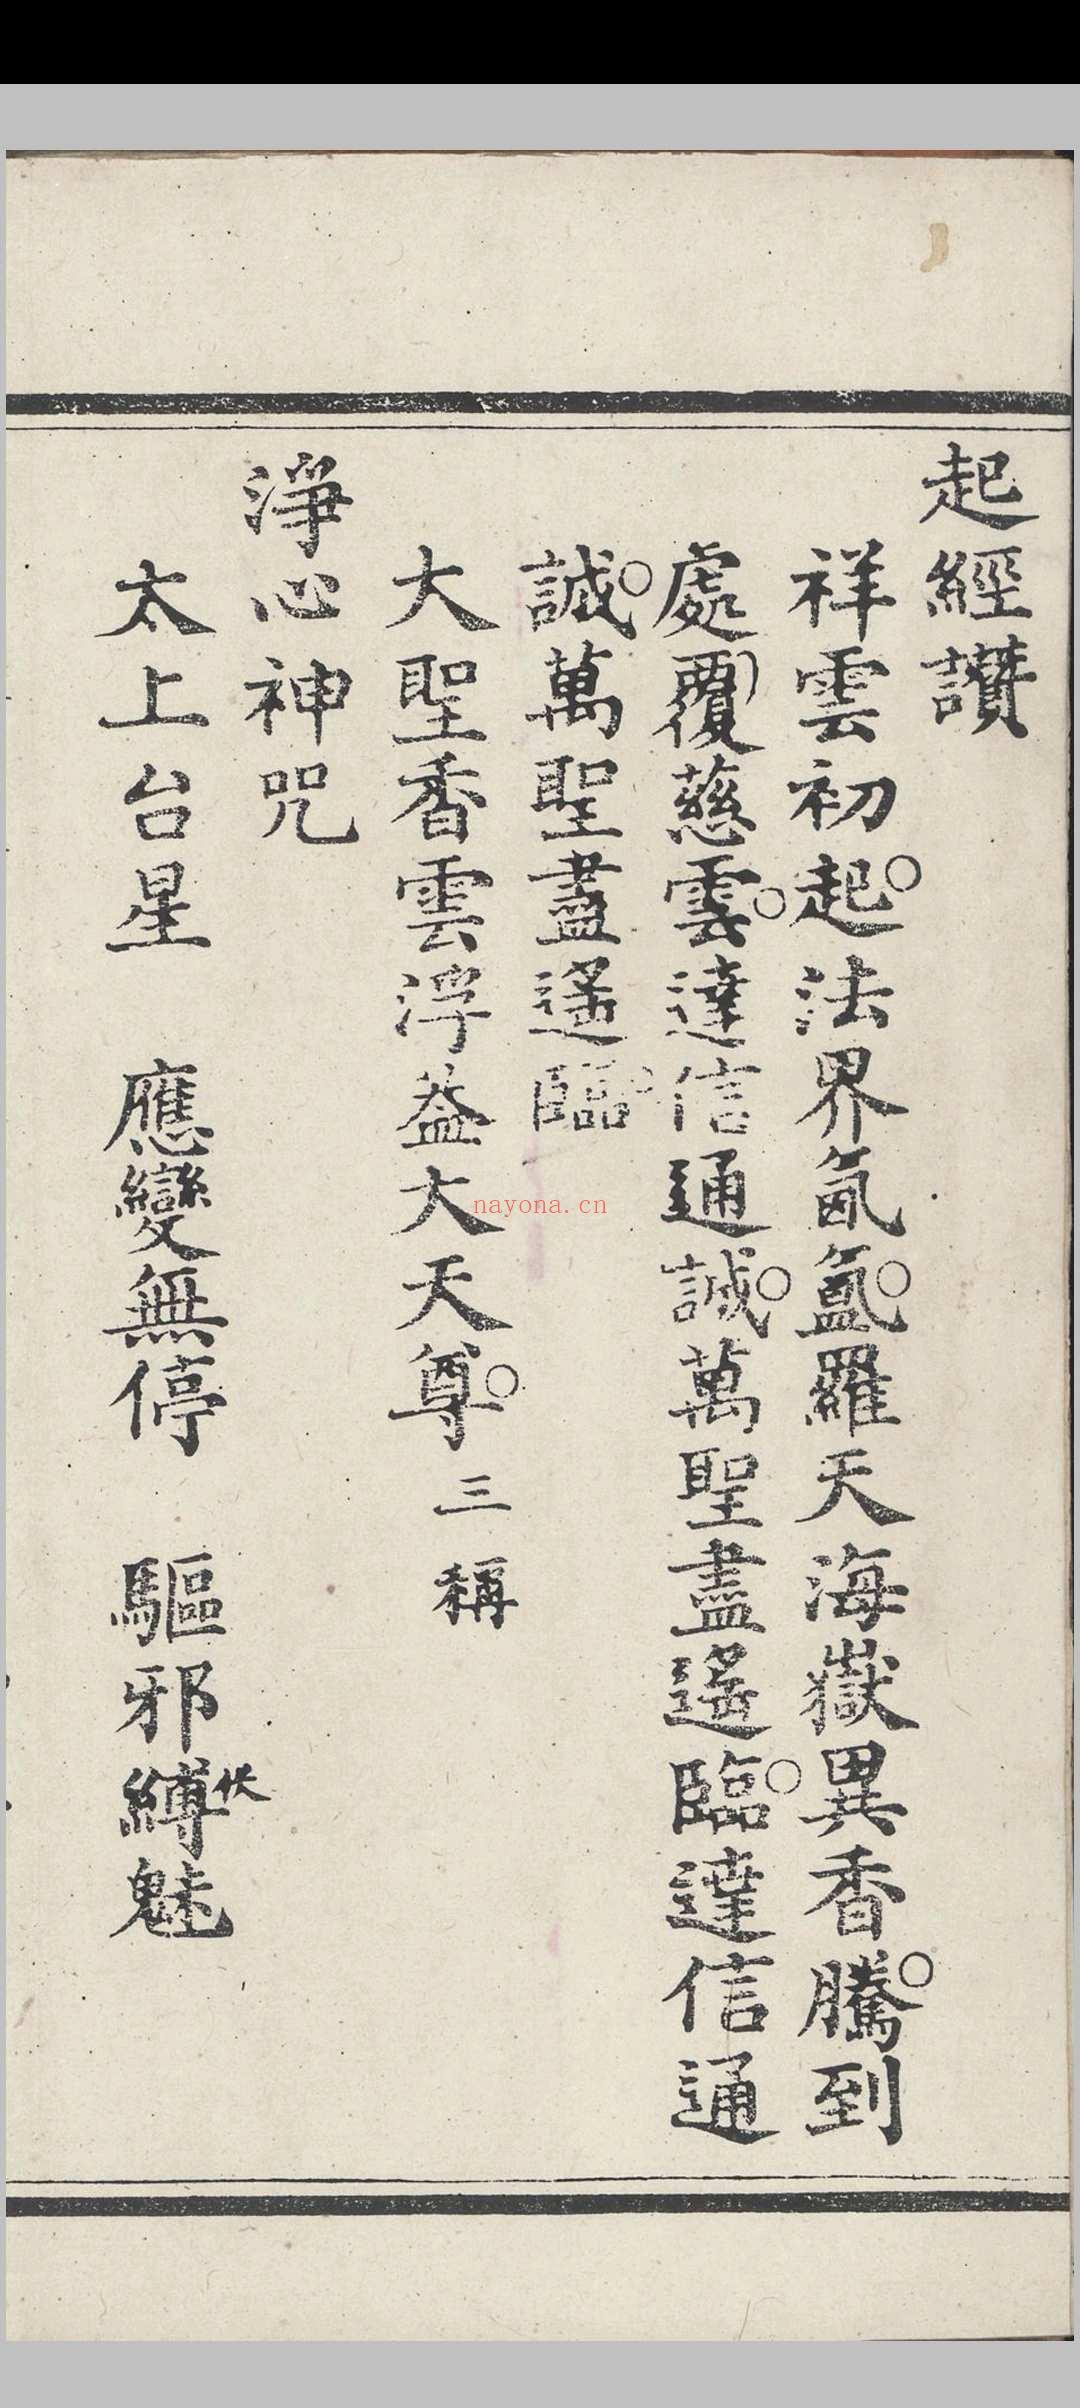 起經讚
祥雲初起○法界氤氳○羅天海嶽異香騰○到
處覆慈雲○達信通誠○萬聖盡遙臨○達信通
誠○萬聖盡遙臨
大聖香雲浮葢大天尊○三稱
淨心神咒
太上台星 應變無停 驅邪縛魅
伏
nayona.cn